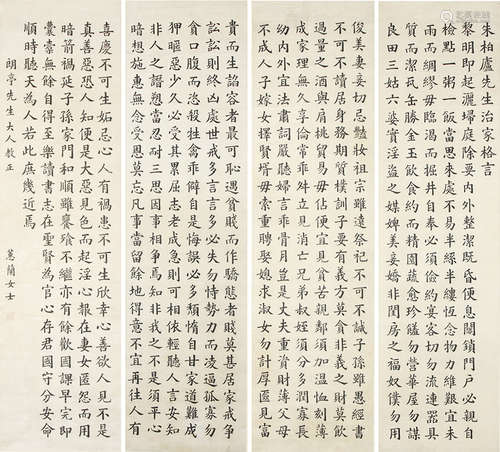 朱柏廬先生治家格言
黎明即起灑掃庭除要內外整潔既昏便息關鎖門戶必親自
檢點一粥一飯當思來處不易半絲半縷恆念物力維艱宜未
雨而綢繆毋臨渴而掘井自奉必須儉約宴客切勿流連器具
質而潔瓦缶勝金玉飲食約而精園蔬愈珍饈勿營華屋勿謀
良田三姑六婆實淫盜之媒婢美妾嬌非閨房之福奴僕勿用
俊美妻妾切忌艷妝祖宗雖遠祭祀不可不誠子孫雖愚經書
不可不讀居身務期質樸訓子要有義方莫貪非義之財莫飲
過量之酒與肩挑貿易毋佔便宜見貧苦親鄰須加溫恤刻薄
成家理無久享倫常乖舛立見消亡兄弟叔姪須分多潤寡長
幼內外宜法肅詞嚴聽婦言乖骨肉豈是丈夫重資財薄父母
不成人子嫁女擇賢壻毋索重聘娶媳求淑女勿計厚匳見富
貴而生諂容者最可恥遇貧賤而作驕態者賤莫甚居家戒爭
訟訟則終凶處世戒多言言多必失勿恃勢力而凌逼孤寡勿
貪口腹而恣殺牲禽乖僻自是悔誤必多頹惰自甘家道難成
狎暱惡少久必受其累屈志老成急則可相依輕聽人言安知
非人之譖愬當忍耐三思因事相爭焉知非我之不是須平心
暗想施惠無念受恩莫忘凡事當留餘地得意不宜再往人有
喜慶不可生妬忌心人有禍患不可生欣幸心善欲人見不是
真善惡恐人知便是大惡見色而起淫心報在妻女匿怨而用
暗箭禍延子孫家門和順雖饔飧不繼亦有餘歡國課早完即
囊橐無餘自得至樂讀書志在聖賢為官心存君國守分安命
順時聽天為人若此庶幾近焉
朗亭先生大人教正
蕙蘭女士